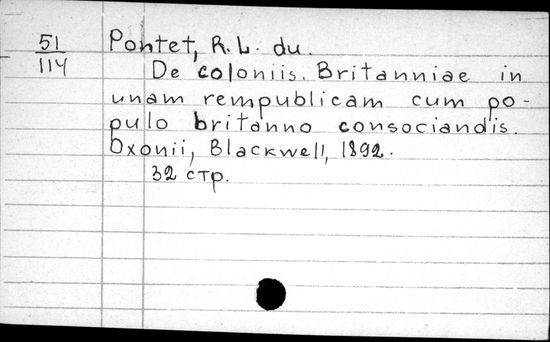 51
114
Pontet, R. L. du.
De coloniis. Britanniae in
unam rempublicam cum po-
pulo britanno consociandis.
Oxonii, Blackwell, 1892.
32 стр.